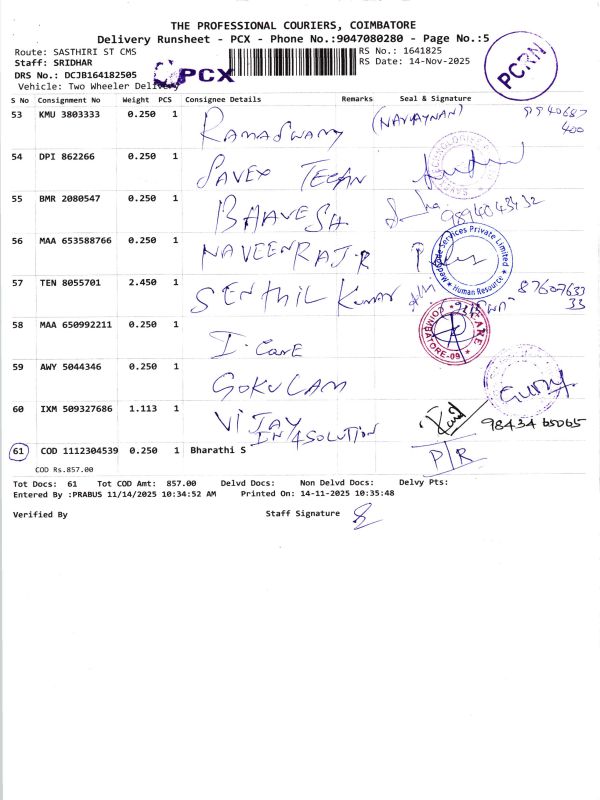 THE PROFESSIONAL COURIERS, COIMBATORE
Delivery Runsheet - PCX - Phone No.:9047080280 - Page No.:5
Route: SASTHIRI ST CMS
RS No.: 1641825
Staff: SRIDHAR
RS Date: 14-Nov-2025
DRS No.: DCJB164182505
PCX
PCRN
Vehicle: Two Wheeler Delivery
S No Consignment No Weight PCS Consignee Details Remarks Seal & Signature
53 KMU 3803333 0.250 1 RAMASWAMY (NARAYNAN) 9940687
400
54 DPI 862266 0.250 1 SAVEX TECAN
55 BMR 2080547 0.250 1 BHAVESH 9894043432
56 MAA 653588766 0.250 1 NAVEENRAJ.R
Services Private Limited
* Human Resource *
57 TEN 8055701 2.450 1 SENTHIL KUMAR 87607633
33
58 MAA 650992211 0.250 1 I.CARE
59 AWY 5044346 0.250 1 GOKULAM
60 IXM 509327686 1.113 1 VIJAY
IN4SOLUTION
98434 65065
61 COD 1112304539 0.250 1 Bharathi S P/R
COD Rs.857.00
Tot Docs: 61 Tot COD Amt: 857.00 Delvd Docs: Non Delvd Docs: Delvy Pts:
Entered By :PRABUS 11/14/2025 10:34:52 AM Printed On: 14-11-2025 10:35:48
Verified By Staff Signature